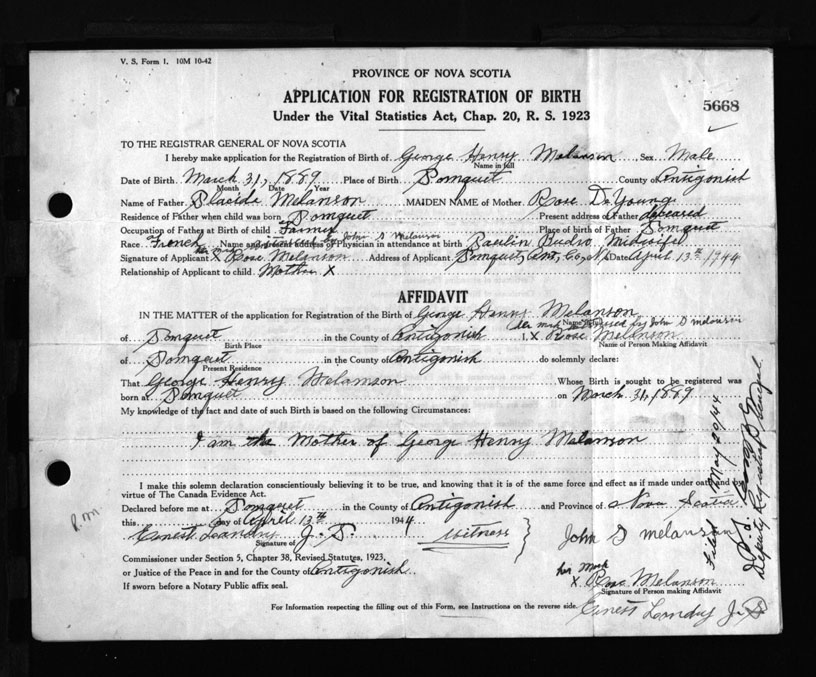 V. S. Form 1. 10M 10-42
PROVINCE OF NOVA SCOTIA
APPLICATION FOR REGISTRATION OF BIRTH
5668
Under the Vital Statistics Act, Chap. 20, R. S. 1923
TO THE REGISTRAR GENERAL OF NOVA SCOTIA
I hereby make application for the Registration of Birth of George Henry Melanson Sex Male
Name in full
Date of Birth March 31, 1889 Place of Birth Pomquet County of Antigonish
Month Date Year
Name of Father Placide Melanson MAIDEN NAME of Mother Rose DeYoung
Residence of Father when child was born Pomquet Present address of Father deceased
Occupation of Father at Birth of child Farmer Place of birth of Father Pomquet
Race French Name and address of Physician in attendance at birth Midwife
her mark witnessed by John S Melanson
Signature of Applicant X Rose Melanson Address of Applicant Pomquet, Ant, Co, N.S. Date April 13th 1944
Relationship of Applicant to child Mother X
AFFIDAVIT
IN THE MATTER of the application for Registration of the Birth of George Henry Melanson
Name in full
her mark witnessed by John S Melanson
of Pomquet in the County of Antigonish I, X Rose Melanson
Birth Place Name of Person Making Affidavit
of Pomquet in the County of Antigonish do solemnly declare:
Present Residence
That George Henry Melanson Whose Birth is sought to be registered was
born at Pomquet on March 31, 1889
My knowledge of the fact and date of such Birth is based on the following Circumstances:
I am the Mother of George Henry Melanson
I make this solemn declaration conscientiously believing it to be true, and knowing that it is of the same force and effect as if made under oath and by
virtue of The Canada Evidence Act.
Declared before me at Pomquet in the County of Antigonish and Province of Nova Scotia
this day of April 13th 1944
Ernest Landry J. P. Witness John S Melanson
Signature of
Commissioner under Section 5, Chapter 38, Revised Statutes, 1923,
or Justice of the Peace in and for the County of Antigonish
her mark
X Rose Melanson
If sworn before a Notary Public affix seal.
Signature of Person making Affidavit
For Information respecting the filling out of this Form, see Instructions on the reverse side.
Ernest Landry J. P.
Filed May 20/44
Deputy Registrar General